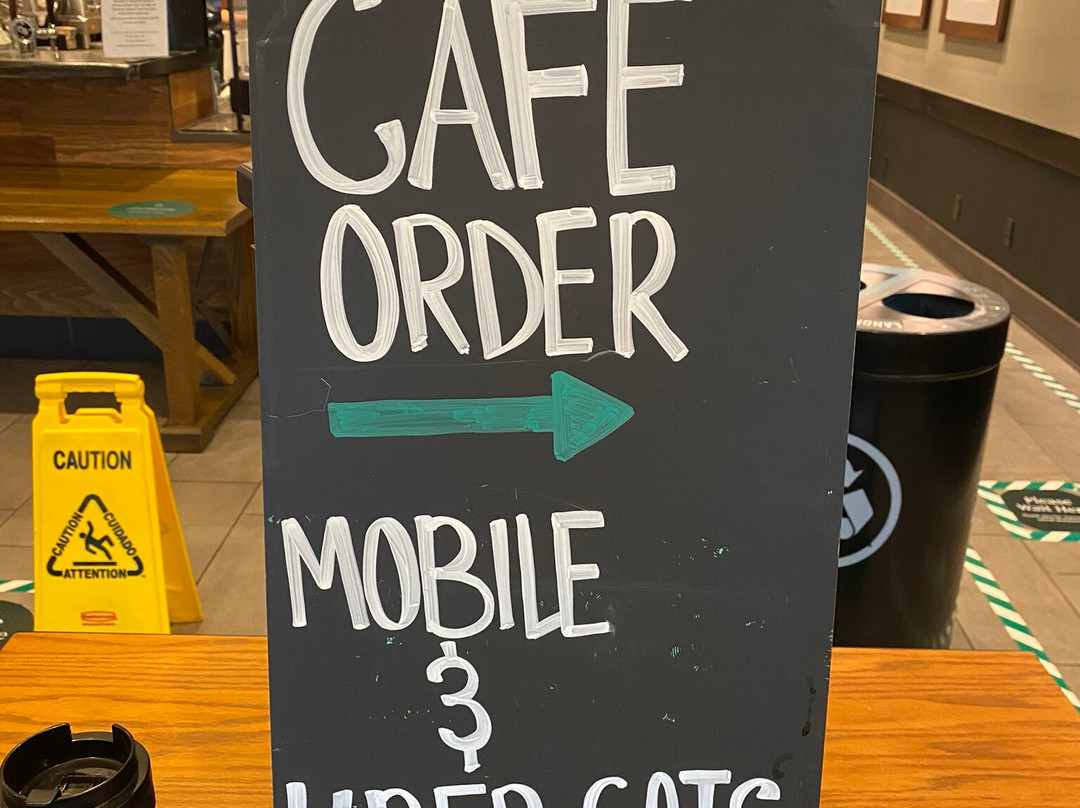 CAFE
ORDER
MOBILE
&
UBER EATS
CAUTION
CAUTION
CUIDADO
ATTENTION
LAND
Please
Wait Here